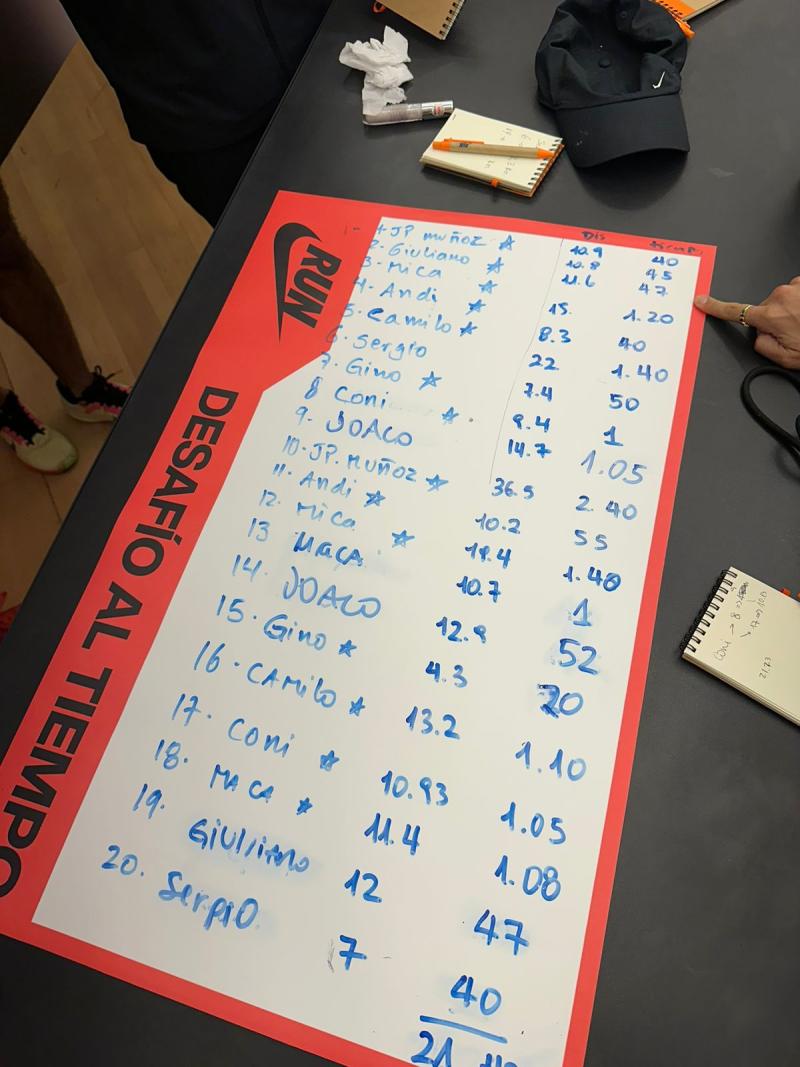 RUN
DESAFÍO AL TIEMPO
Dis
1- JP MUÑOZ ☆ 10.9 40
2- Giuliano ☆ 10.8 45
3- Mica ☆ 11.6 47
4- Andi ☆ 15. 1.20
5- Camilo ☆ 8.3 40
6 Sergio 22 1.40
7. Gino ☆ 7.4 50
8 Coni ☆ 9.4 1
9. JOACO 14.7 1.05
10. JP. MUÑOZ ☆ 36.5 2.40
11. Andi ☆ 10.2 55
12. Mica ☆ 1.40
13 MACA 10.7 1
14. JOACO 12.9 52
15. Gino ☆ 4.3 20
16. CAMilo ☆ 13.2 1.10
17. Coni ☆ 10.93 1.05
18. MACA ☆ 11.4 1.08
19. GiUlliANO 12 47
20. SergiO 7 40
Coni → 8